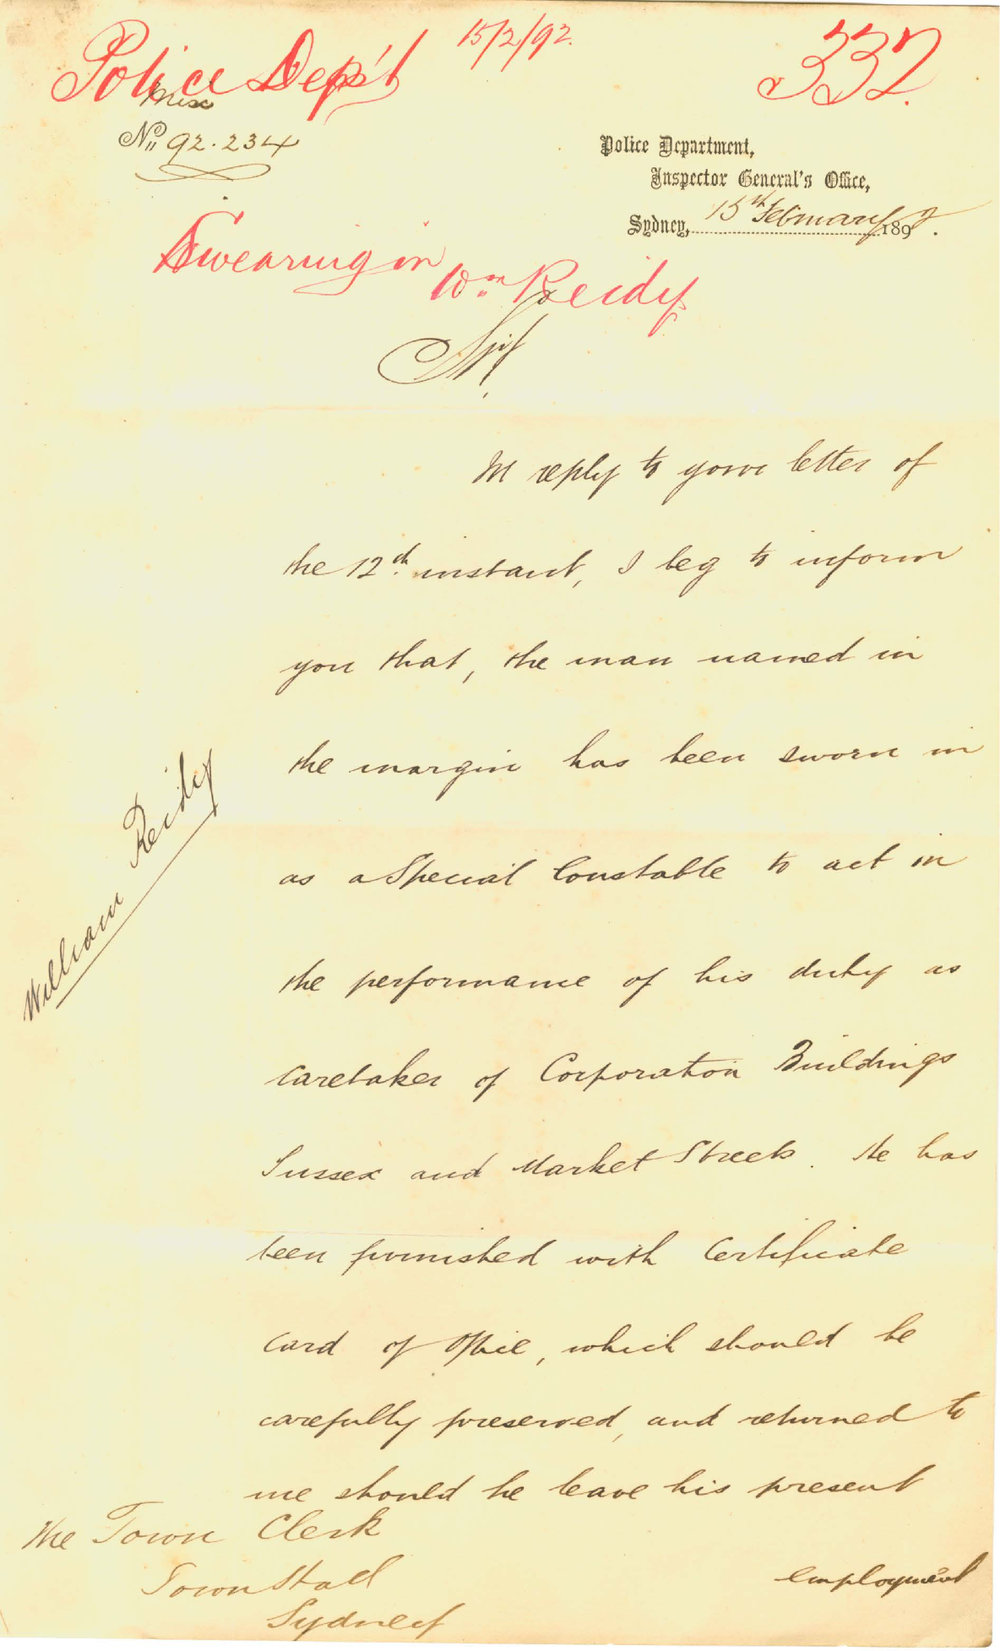 Police Dep't 15/2/92. 332.
Misc
No. 92.234
Police Department,
Inspector General's Office,
Sydney, 15th February 1892.
Swearing in
Wm Reidy
Sir,
In reply to your letter of
the 12th instant, I beg to inform
you that, the man named in
the margin has been sworn in
William Reidy
as a Special Constable to act in
the performance of his duty as
Caretaker of Corporation Buildings
Sussex and Market Streets. He has
been furnished with Certificate
Card of Office, which should be
carefully preserved, and returned to
me should he leave his present
employment
The Town Clerk
Town Hall
Sydney